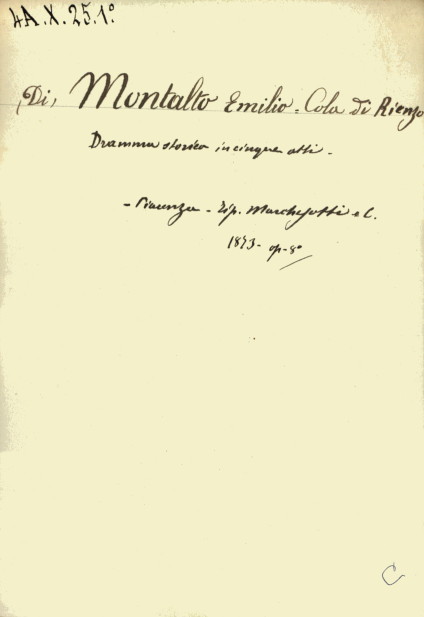 4A.X.25.1º
(Di, Montalto Emilio - Cola di Rienzo
Dramma storico in cinque atti -
- Piacenza - Tip. Marchesotti e C.
1873 - op-8º
C